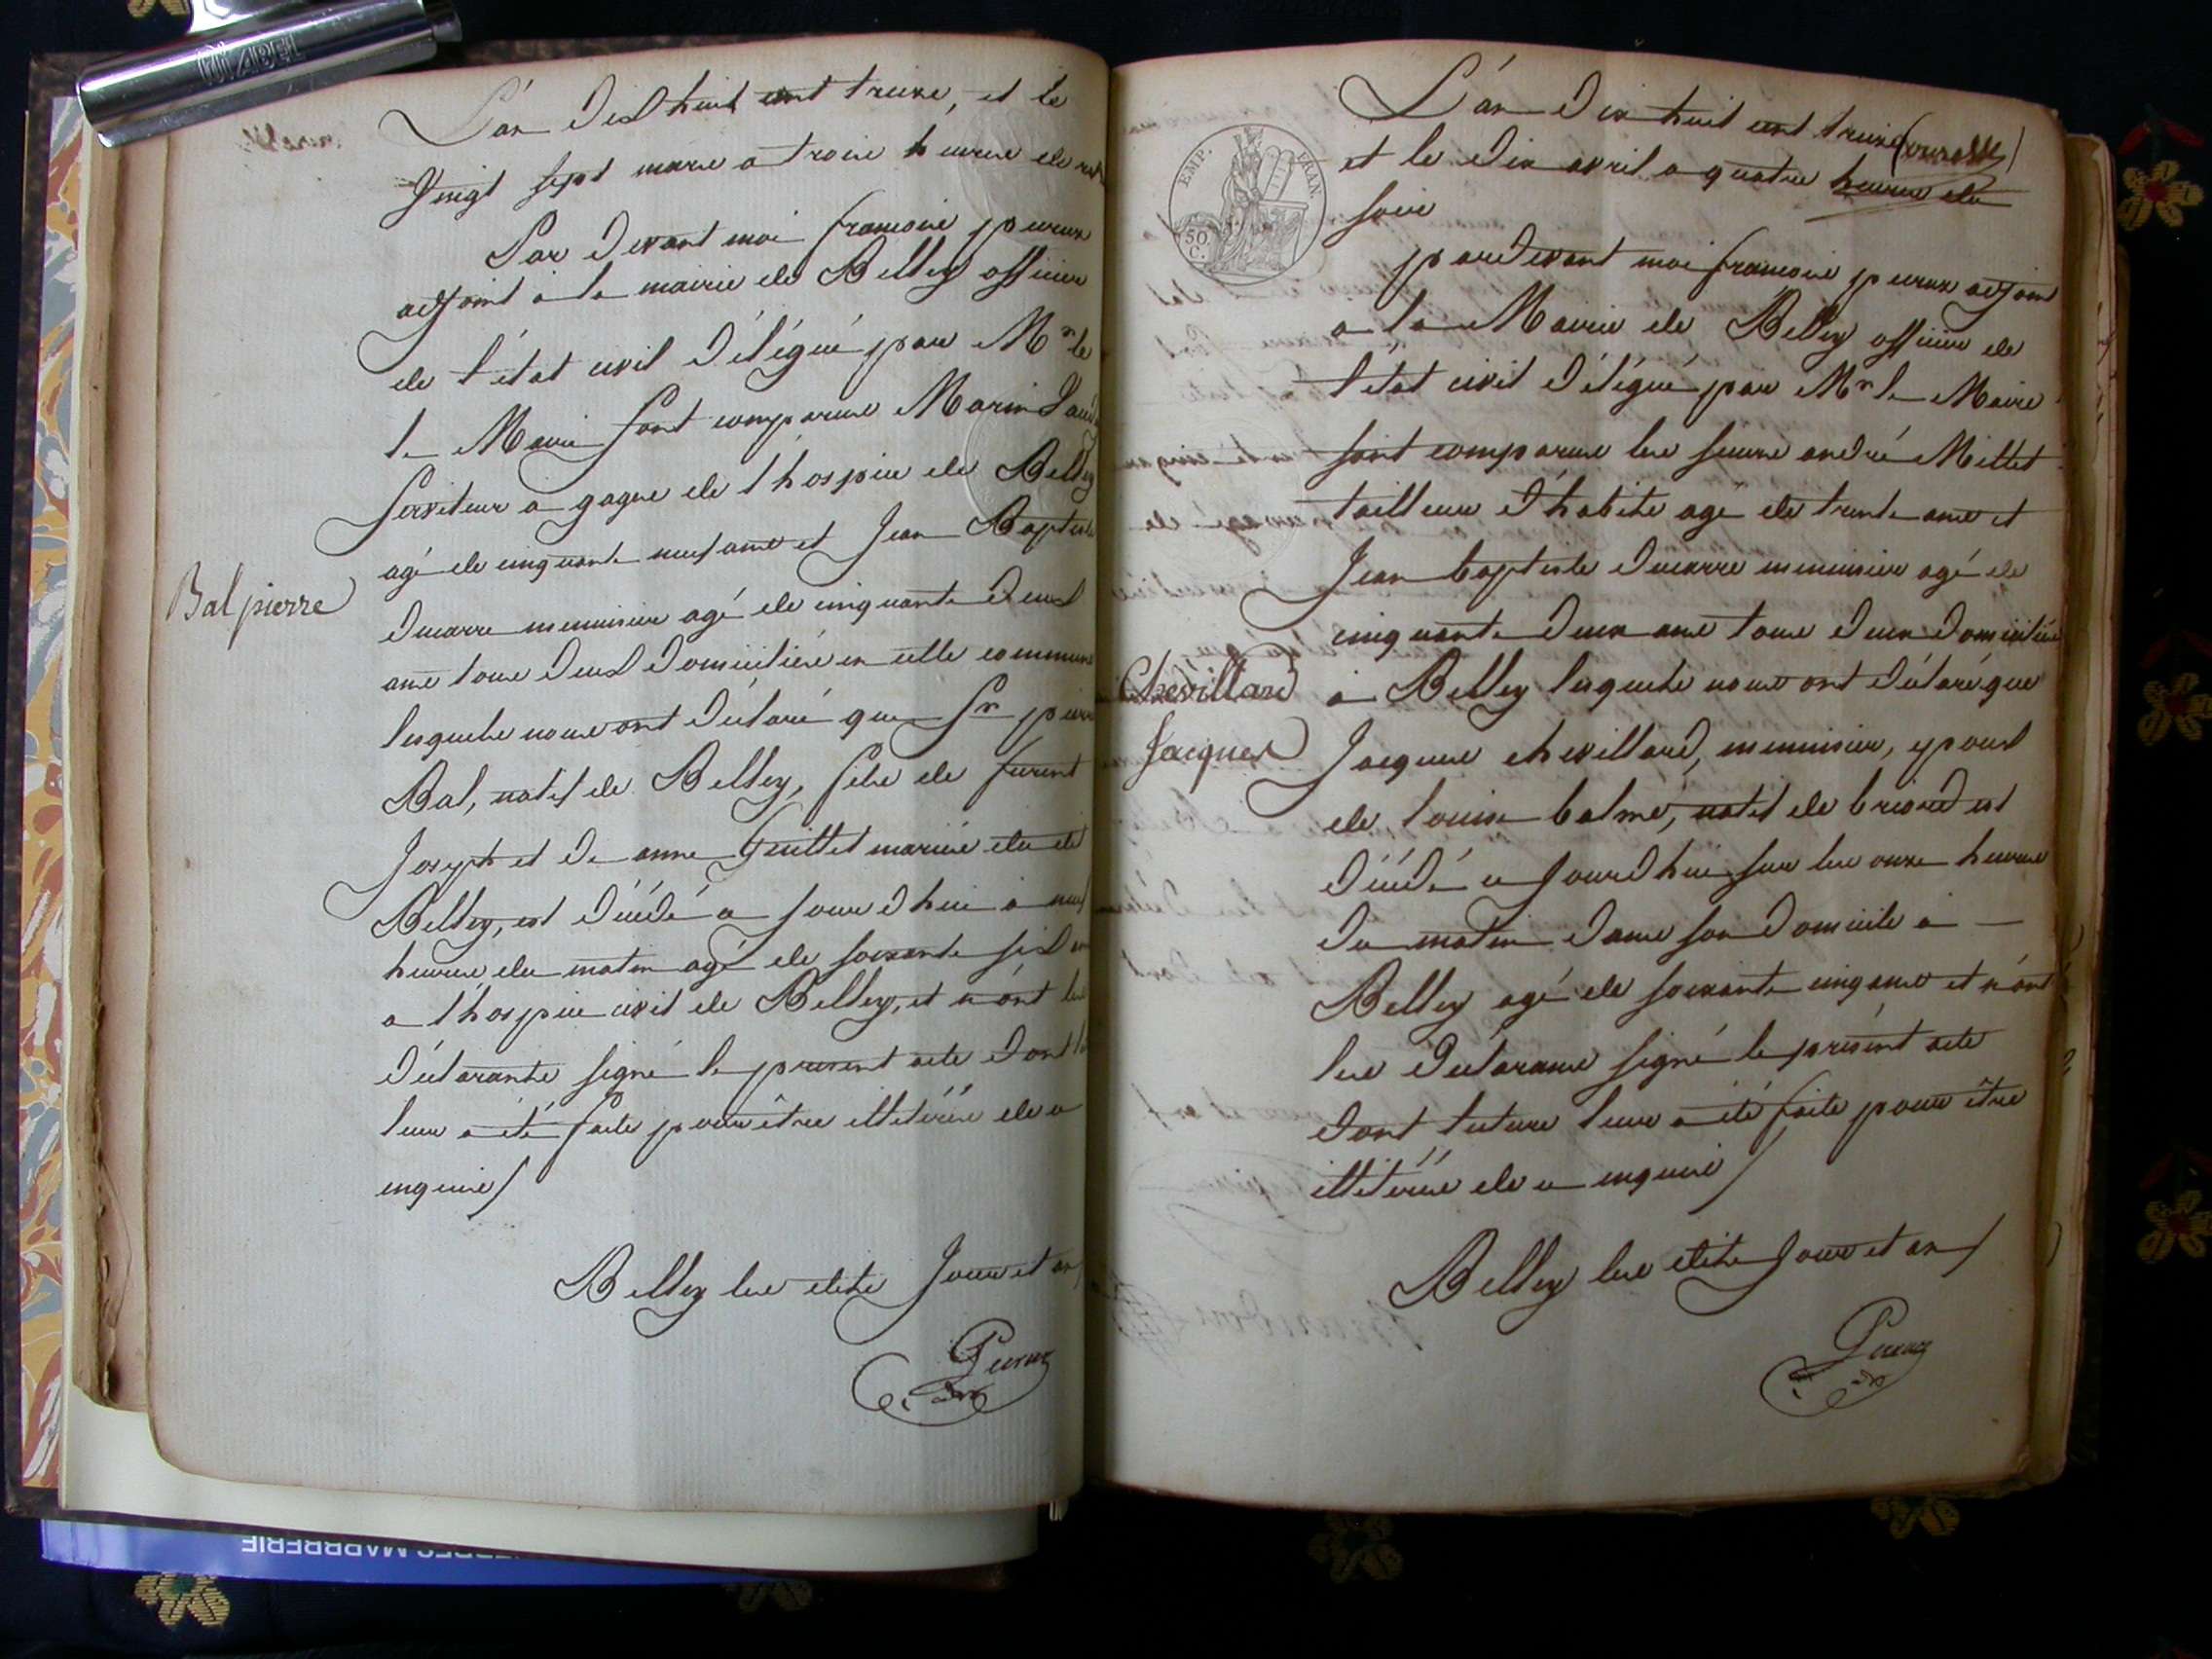 DIABEL
L'an dix huit cent treize, et le
Vingt sept mars a trois heures de
Par devant moi françois peuux
adjoint à la mairie de Belley officier
de l'état civil délégué par Mr le
le Maire sont comparus Marin
serviteur à gages de l'hospice de Belley
agé de cinquante neuf ans et Jean Baptiste
Ducarre menuisier agé de cinquante deux
ans tous deux domiciliés en cette commune
lesquels nous ont déclaré que Sr pierre
Bal, natif de Belley, fils de furent
Joseph et de anne Guillet mariés de
Belley, est décédé a jourd'hui à neuf
heures du matin agé de soixante six
a l'hospice civil de Belley, et n'ont les
déclarants signé le present acte dont
leur a été faite pour être illitérés de ce
enquis
Belley les dits jour et an
Bal pierre
EMP. FRAN.
50. C.
L'an dix huit cent treize
et le dix avril a quatre heures du
soir
pardevant moi françois adjoint
a la Mairie de Belley officier de
l'état civil délégué par Mr le Maire
sont comparus les sieurs andré Millet
tailleur d'habits agé de trente ans et
Jean baptiste Ducarre menuisier agé de
cinquante deux ans tous deux domiciliés
à Belley lesquels nous ont déclaré que
Jacques chevillard, menuisier, époux
de louise balme, natif de briord est
décédé ce jourd'hui sur les onze heures
du matin dans son domicile à
Belley agé de soixante cinq ans et n'ont
les déclarans signé le présent acte
dont lecture leur a été faite pour être
illitérés de ce enquis
Belley les dits jour et an
Chevillard
Jacques
MARBRERIE